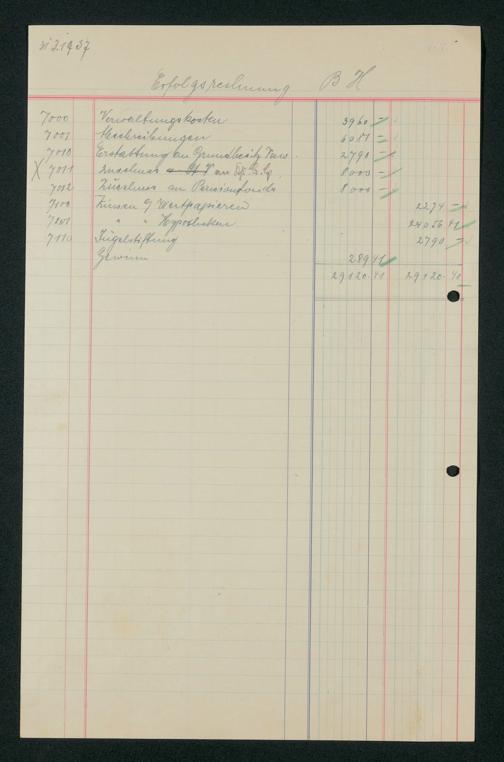 31.3.1937
Erfolgsrechnung B H
7000 Verwaltungskosten 3960 —
7001 Abschreibungen 6081 —
7010 Erstattung an Grundbesitz Verw. 2790 —
X 7011 Zuschuss an 8000 —
7012 Zuschuss an Pensionsfonds 8000 —
7100 Zinsen a/ Wertpapieren 2274 —
7101 " " Hypotheken 24056 41
7110 Jügelstiftung 2790 —
Gewinn 289 41
29120.41 29120.41